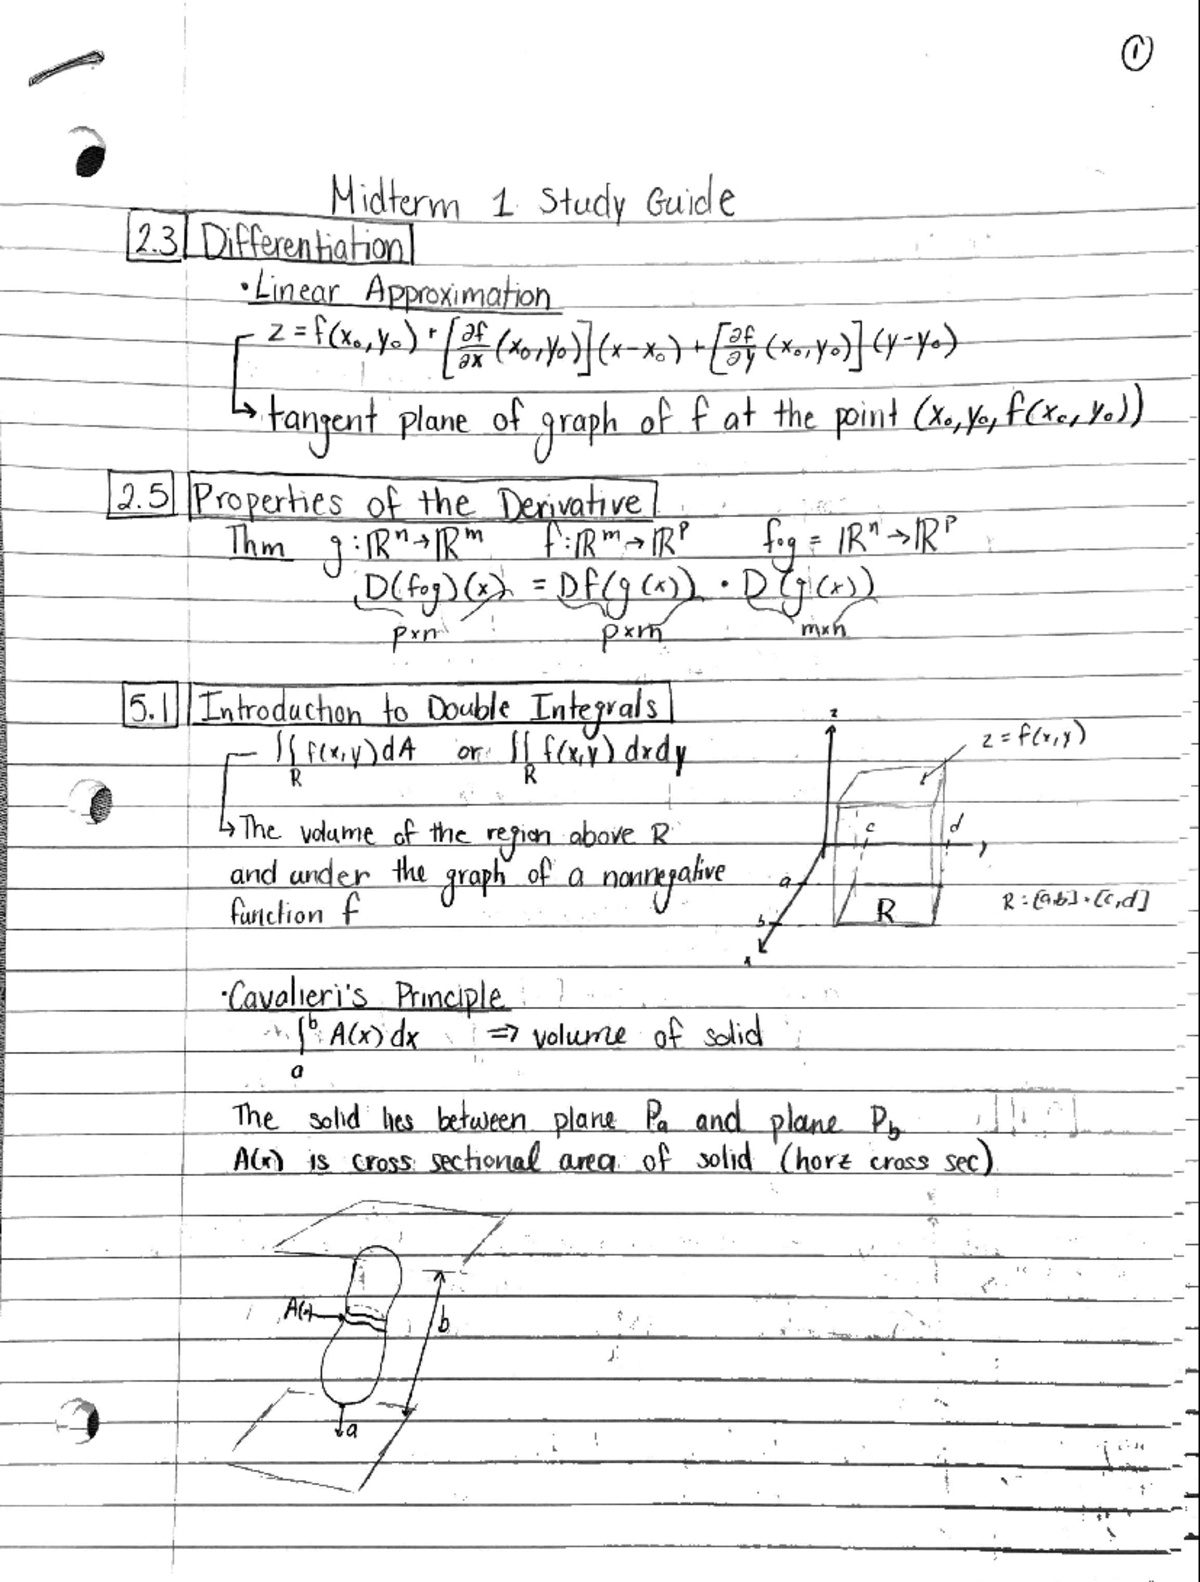 ①
Midterm 1 Study Guide
2.3 Differentiation
• Linear Approximation
z = f(x₀,y₀) + [∂f/∂x (x₀,y₀)](x-x₀) + [∂f/∂y (x₀,y₀)](y-y₀)
↳ tangent plane of graph of f at the point (x₀,y₀,f(x₀,y₀))
2.5 Properties of the Derivative
Thm g:ℝⁿ→ℝᵐ f:ℝᵐ→ℝᵖ f∘g = ℝⁿ→ℝᵖ
D(f∘g)(x) = Df(g(x)) • D(g(x))
p×n p×m m×n
5.1 Introduction to Double Integrals
∬ f(x,y)dA or ∬ f(x,y)dxdy
R R
↳ The volume of the region above R
and under the graph of a nonnegative
function f
z
z = f(x,y)
c d
y
a
R
b
x
R:[a,b]×[c,d]
• Cavalieri's Principle
∫ᵇ A(x)dx ⇒ volume of solid
a
The solid lies between plane Pₐ and plane P_b
A(x) is cross sectional area of solid (horz cross sec)
A(x)
b
a